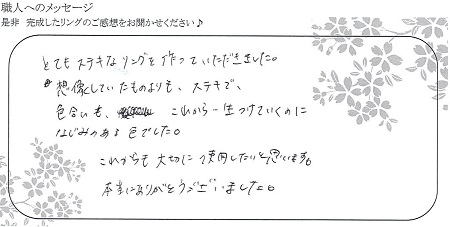 職人へのメッセージ
是非 完成したリングのご感想をお聞かせください♪
とてもステキなリングを作っていただきました。
想像していたものよりも、ステキで、
色合いも、これから一生つけていくのに
なじみのある色でした。
これからも大切に使用したいと思います。
本当にありがとうございました。